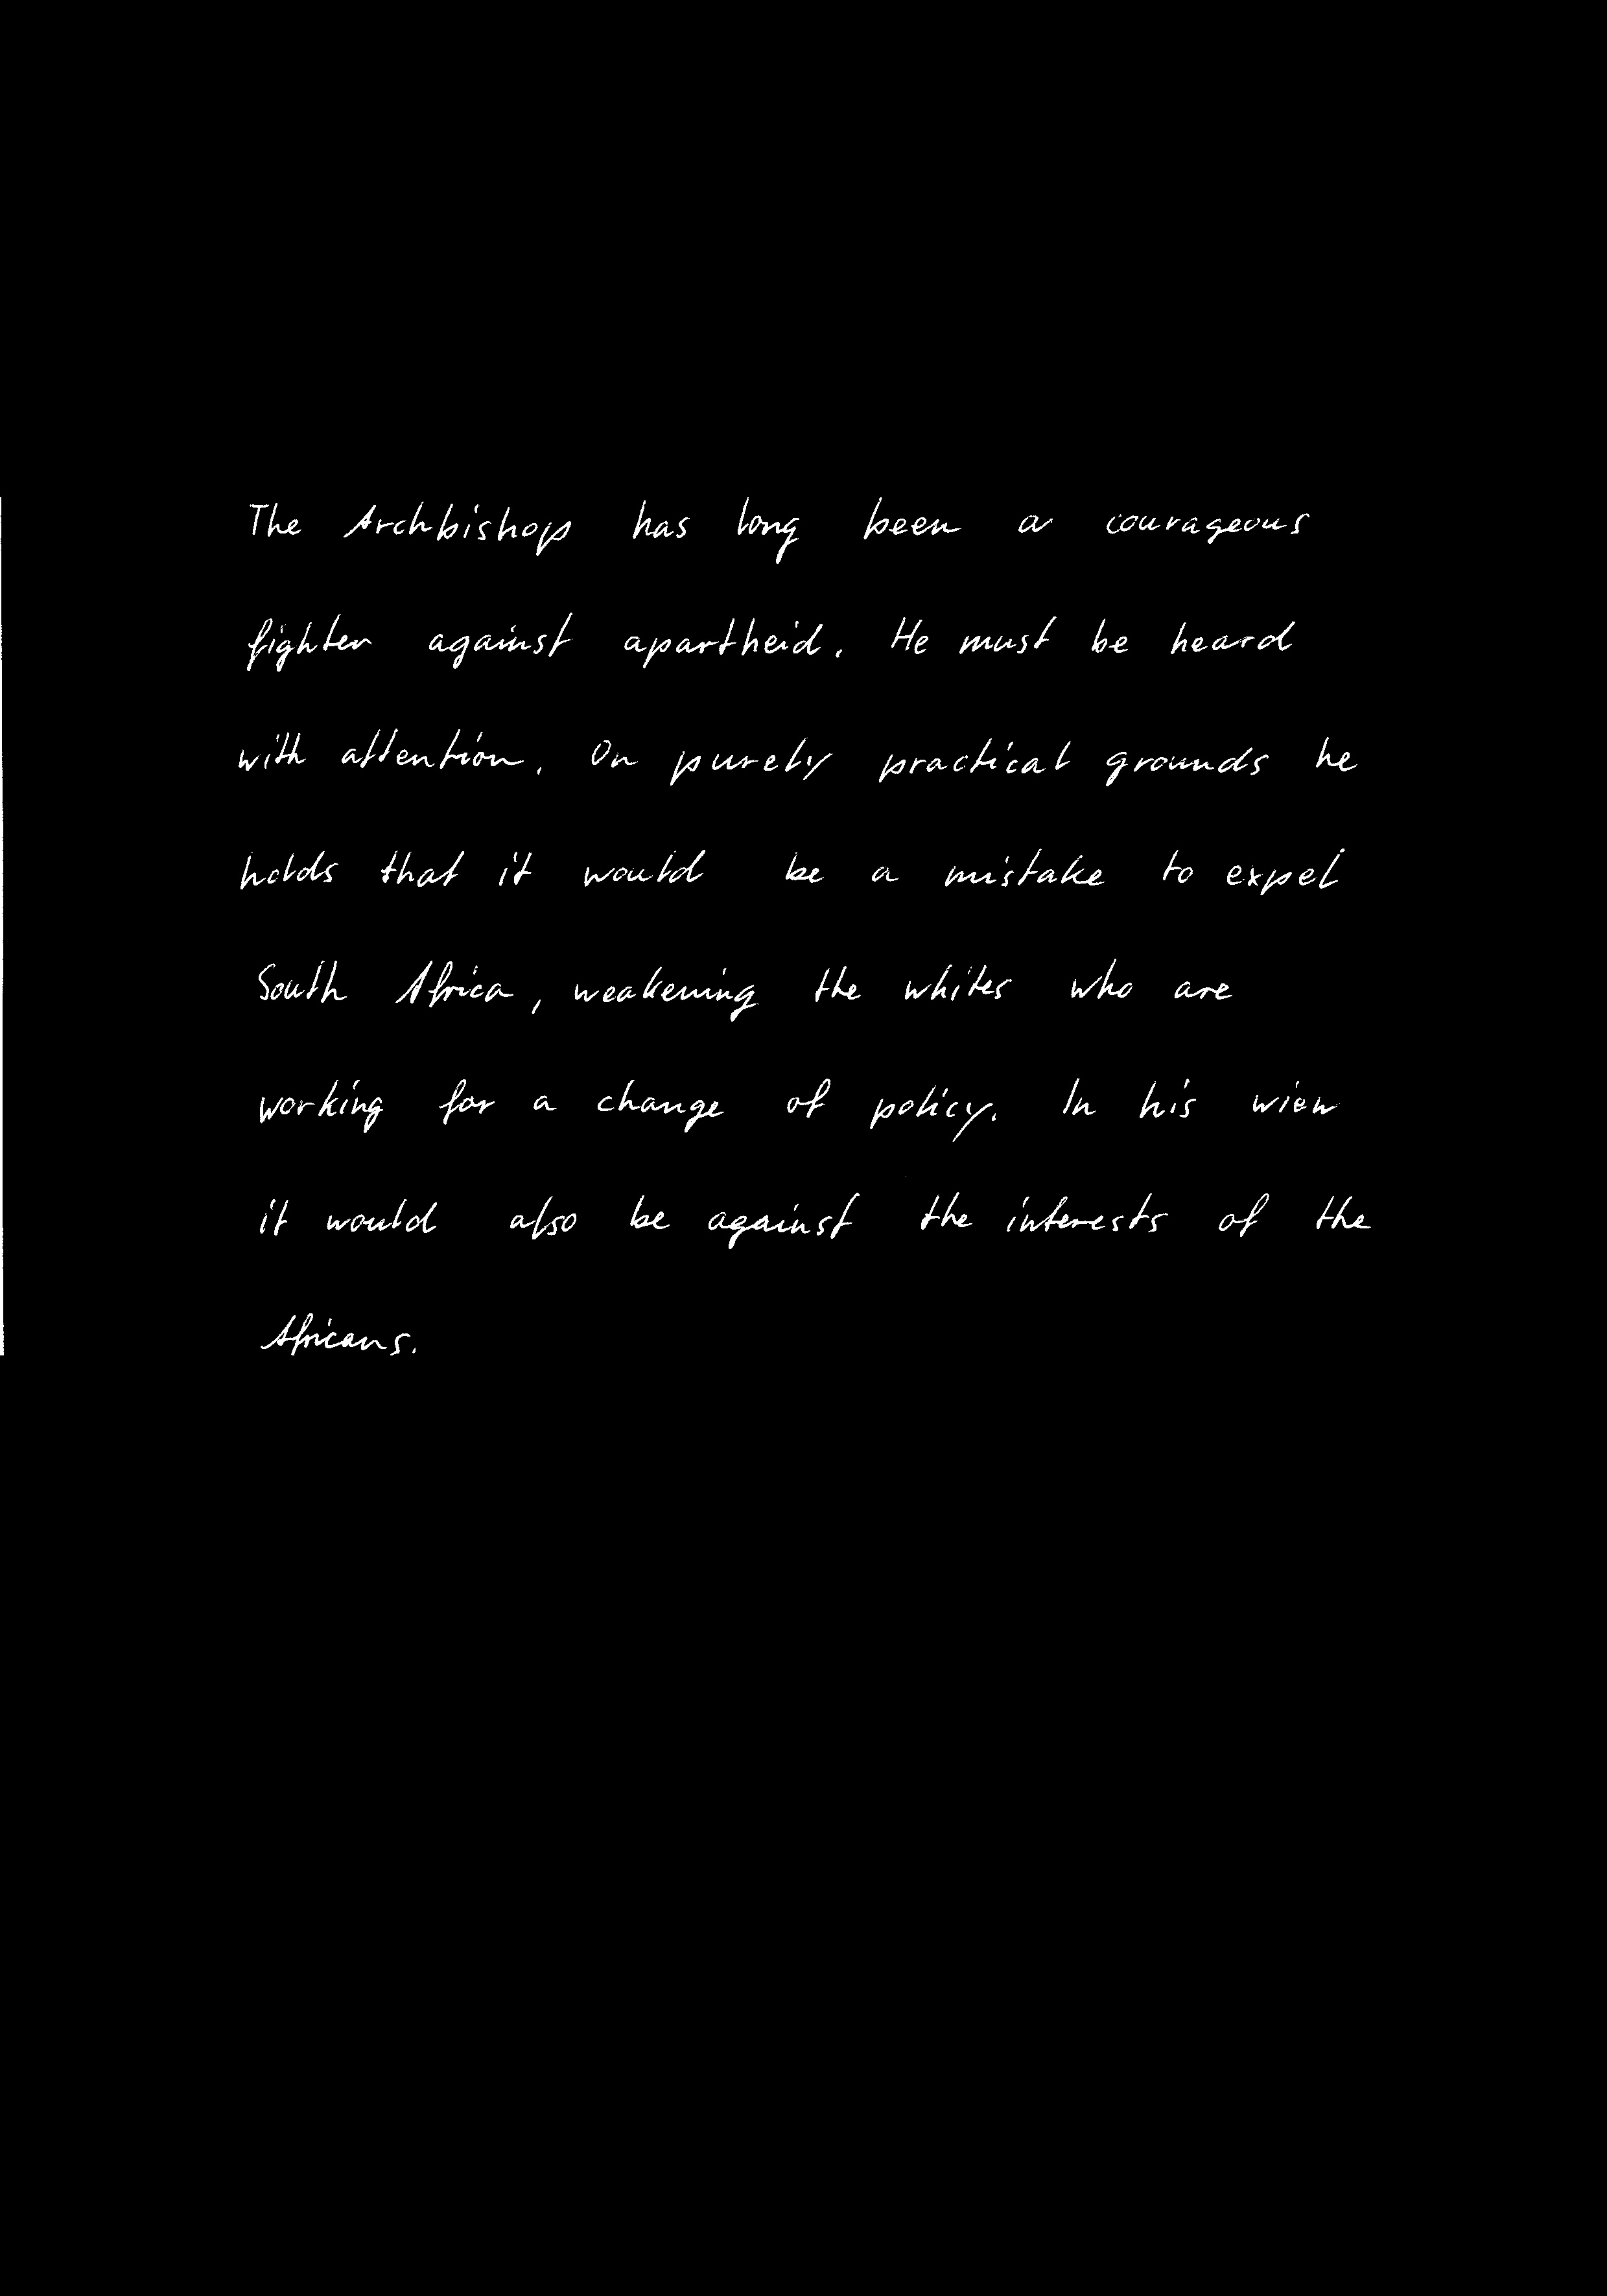 The Archbishop has long been a courageous
fighter against apartheid. He must be heard
with attention. On purely practical grounds he
holds that it would be a mistake to expel
South Africa, weakening the whites who are
working for a change of policy. In his wiew
it would also be against the interests of the
Africans.